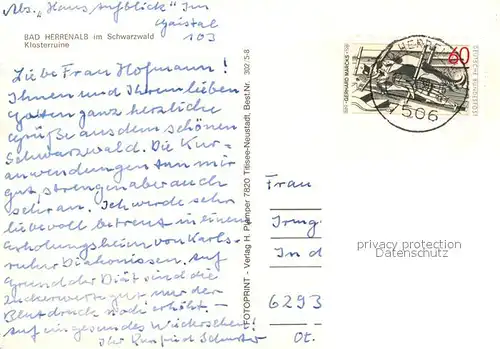 Abs. "Haus Aufblick" Im
Gaistal
103
BAD HERRENALB im Schwarzwald
Klosterruine
Liebe Frau Hofmann!
Ihnen und Ihrem lieben
Gatten ganz herzliche
Grüße aus dem schönen
Schwarzwald. Die Kur-
anwendungen tun mir
gut, strengen aber auch
sehr an. Ich werde sehr
liebevoll betreut in einem
Erholungsheim von Karls-
ruher Diakonissen. Auf
Grund der Diät sind die
Zuckerwerte gut, nur der
Blutdruck noch erhöht. -
Auf ein gesundes Wiedersehen!
Ihr
FOTOPRINT - Verlag H. Plamper 7820 Titisee-Neustadt, Best.Nr. 302/5-8
GERHARD MARCKS
60
DEUTSCHE BUNDESPOST
506
Frau
Irmg.
In d
6293
Ot.
privacy protection
Datenschutz